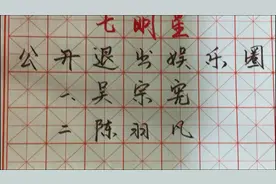 七明星
公开退出娱乐圈
一、吴宗宪
二陈羽凡